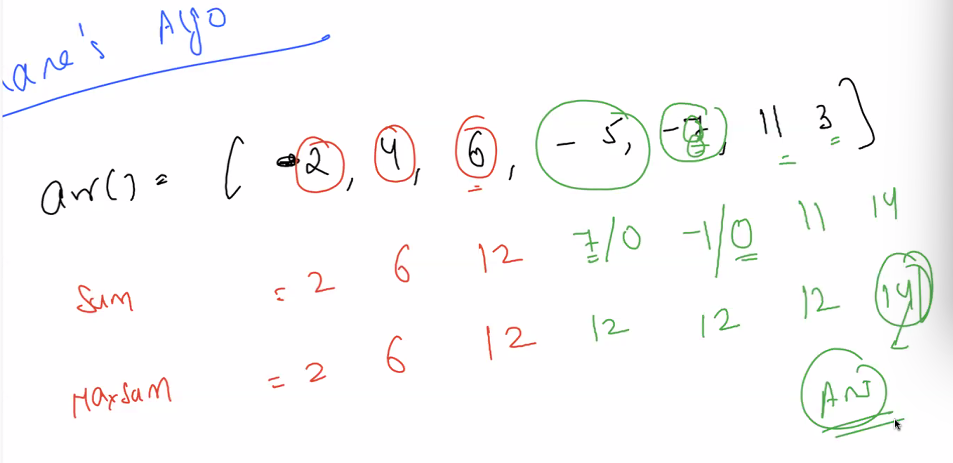 ane's Algo
arr() = [ 2, 4, 6, -5, -8, 11 3 ]
Sum = 2 6 12 7/0 -1/0 11 14
MaxSum = 2 6 12 12 12 12 14
Ans